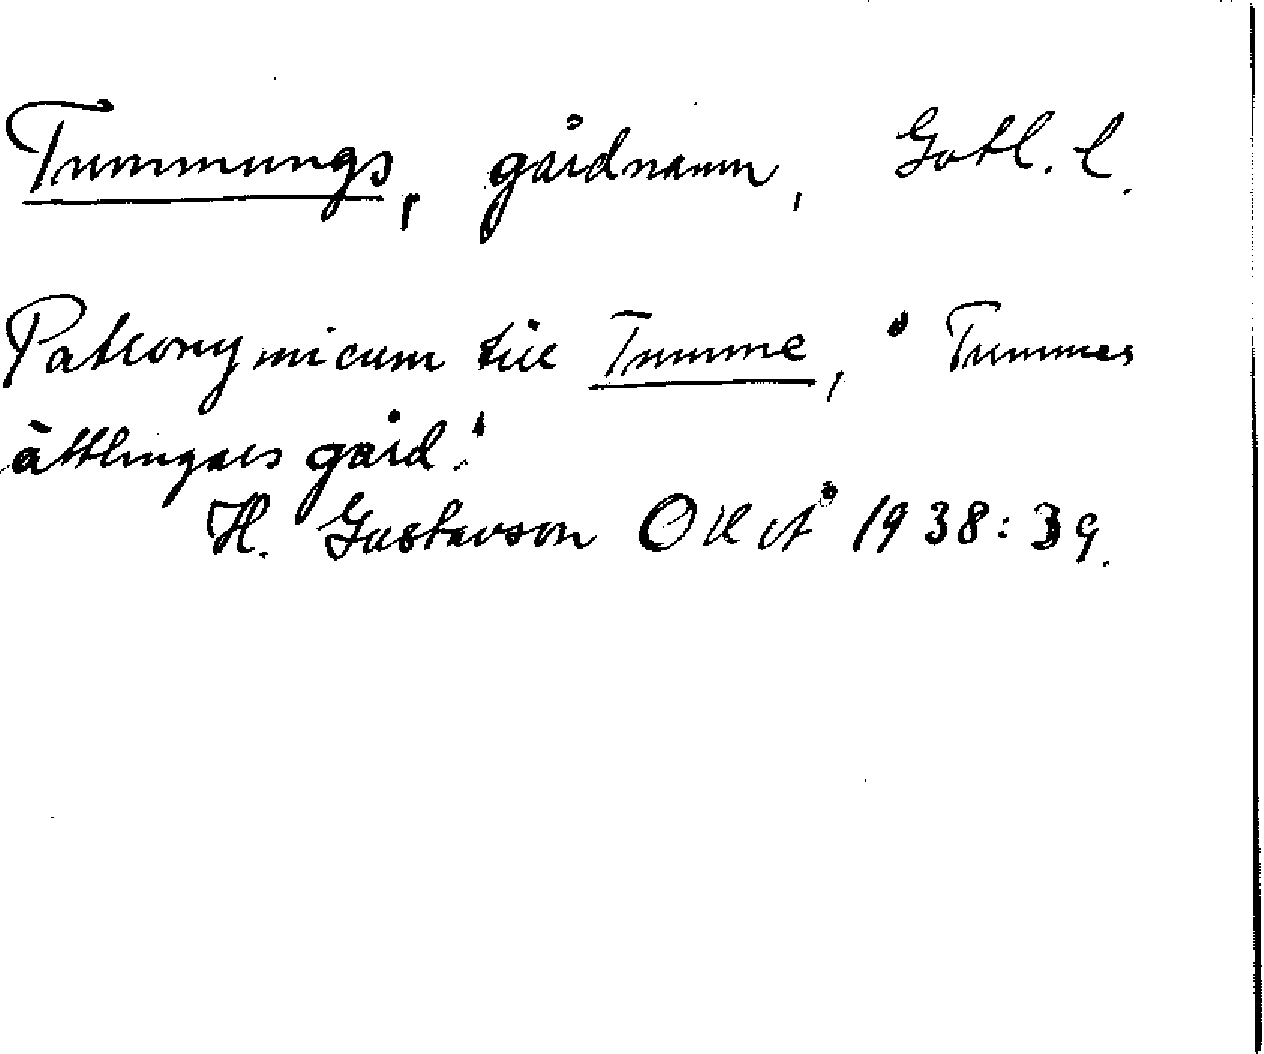 Tummungs, gårdnamn, Gotl. l.
Patronymicum till Tumme, "Tummes
ättlingars gård."
H. Gustavson OUÅ 1938:39.